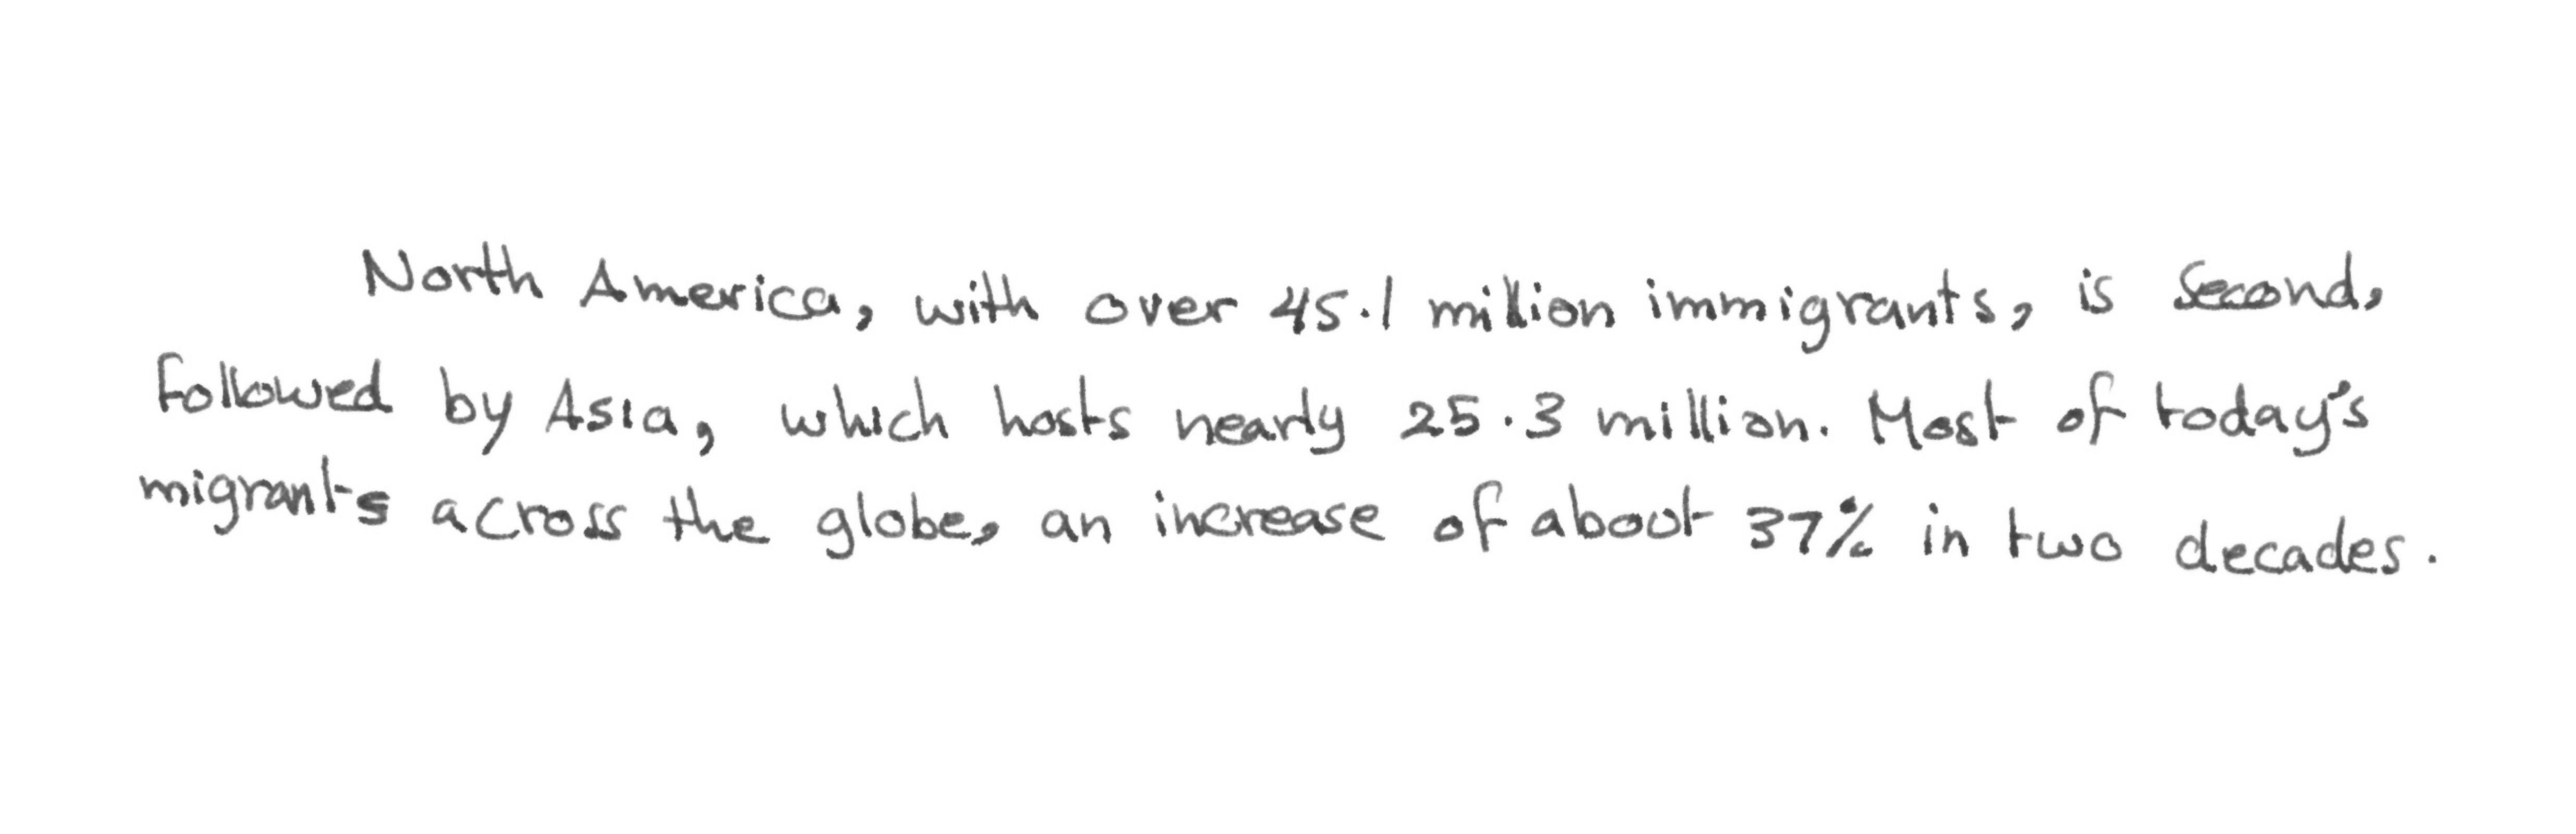 North America, with over 45.1 million immigrants, is second,
followed by Asia, which hosts nearly 25.3 million. Most of today's
migrants across the globe, an increase of about 37% in two decades.